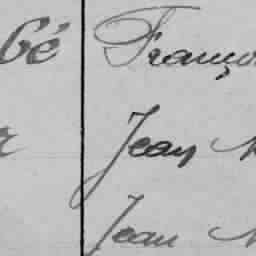 bé Franço
Jean
Jean